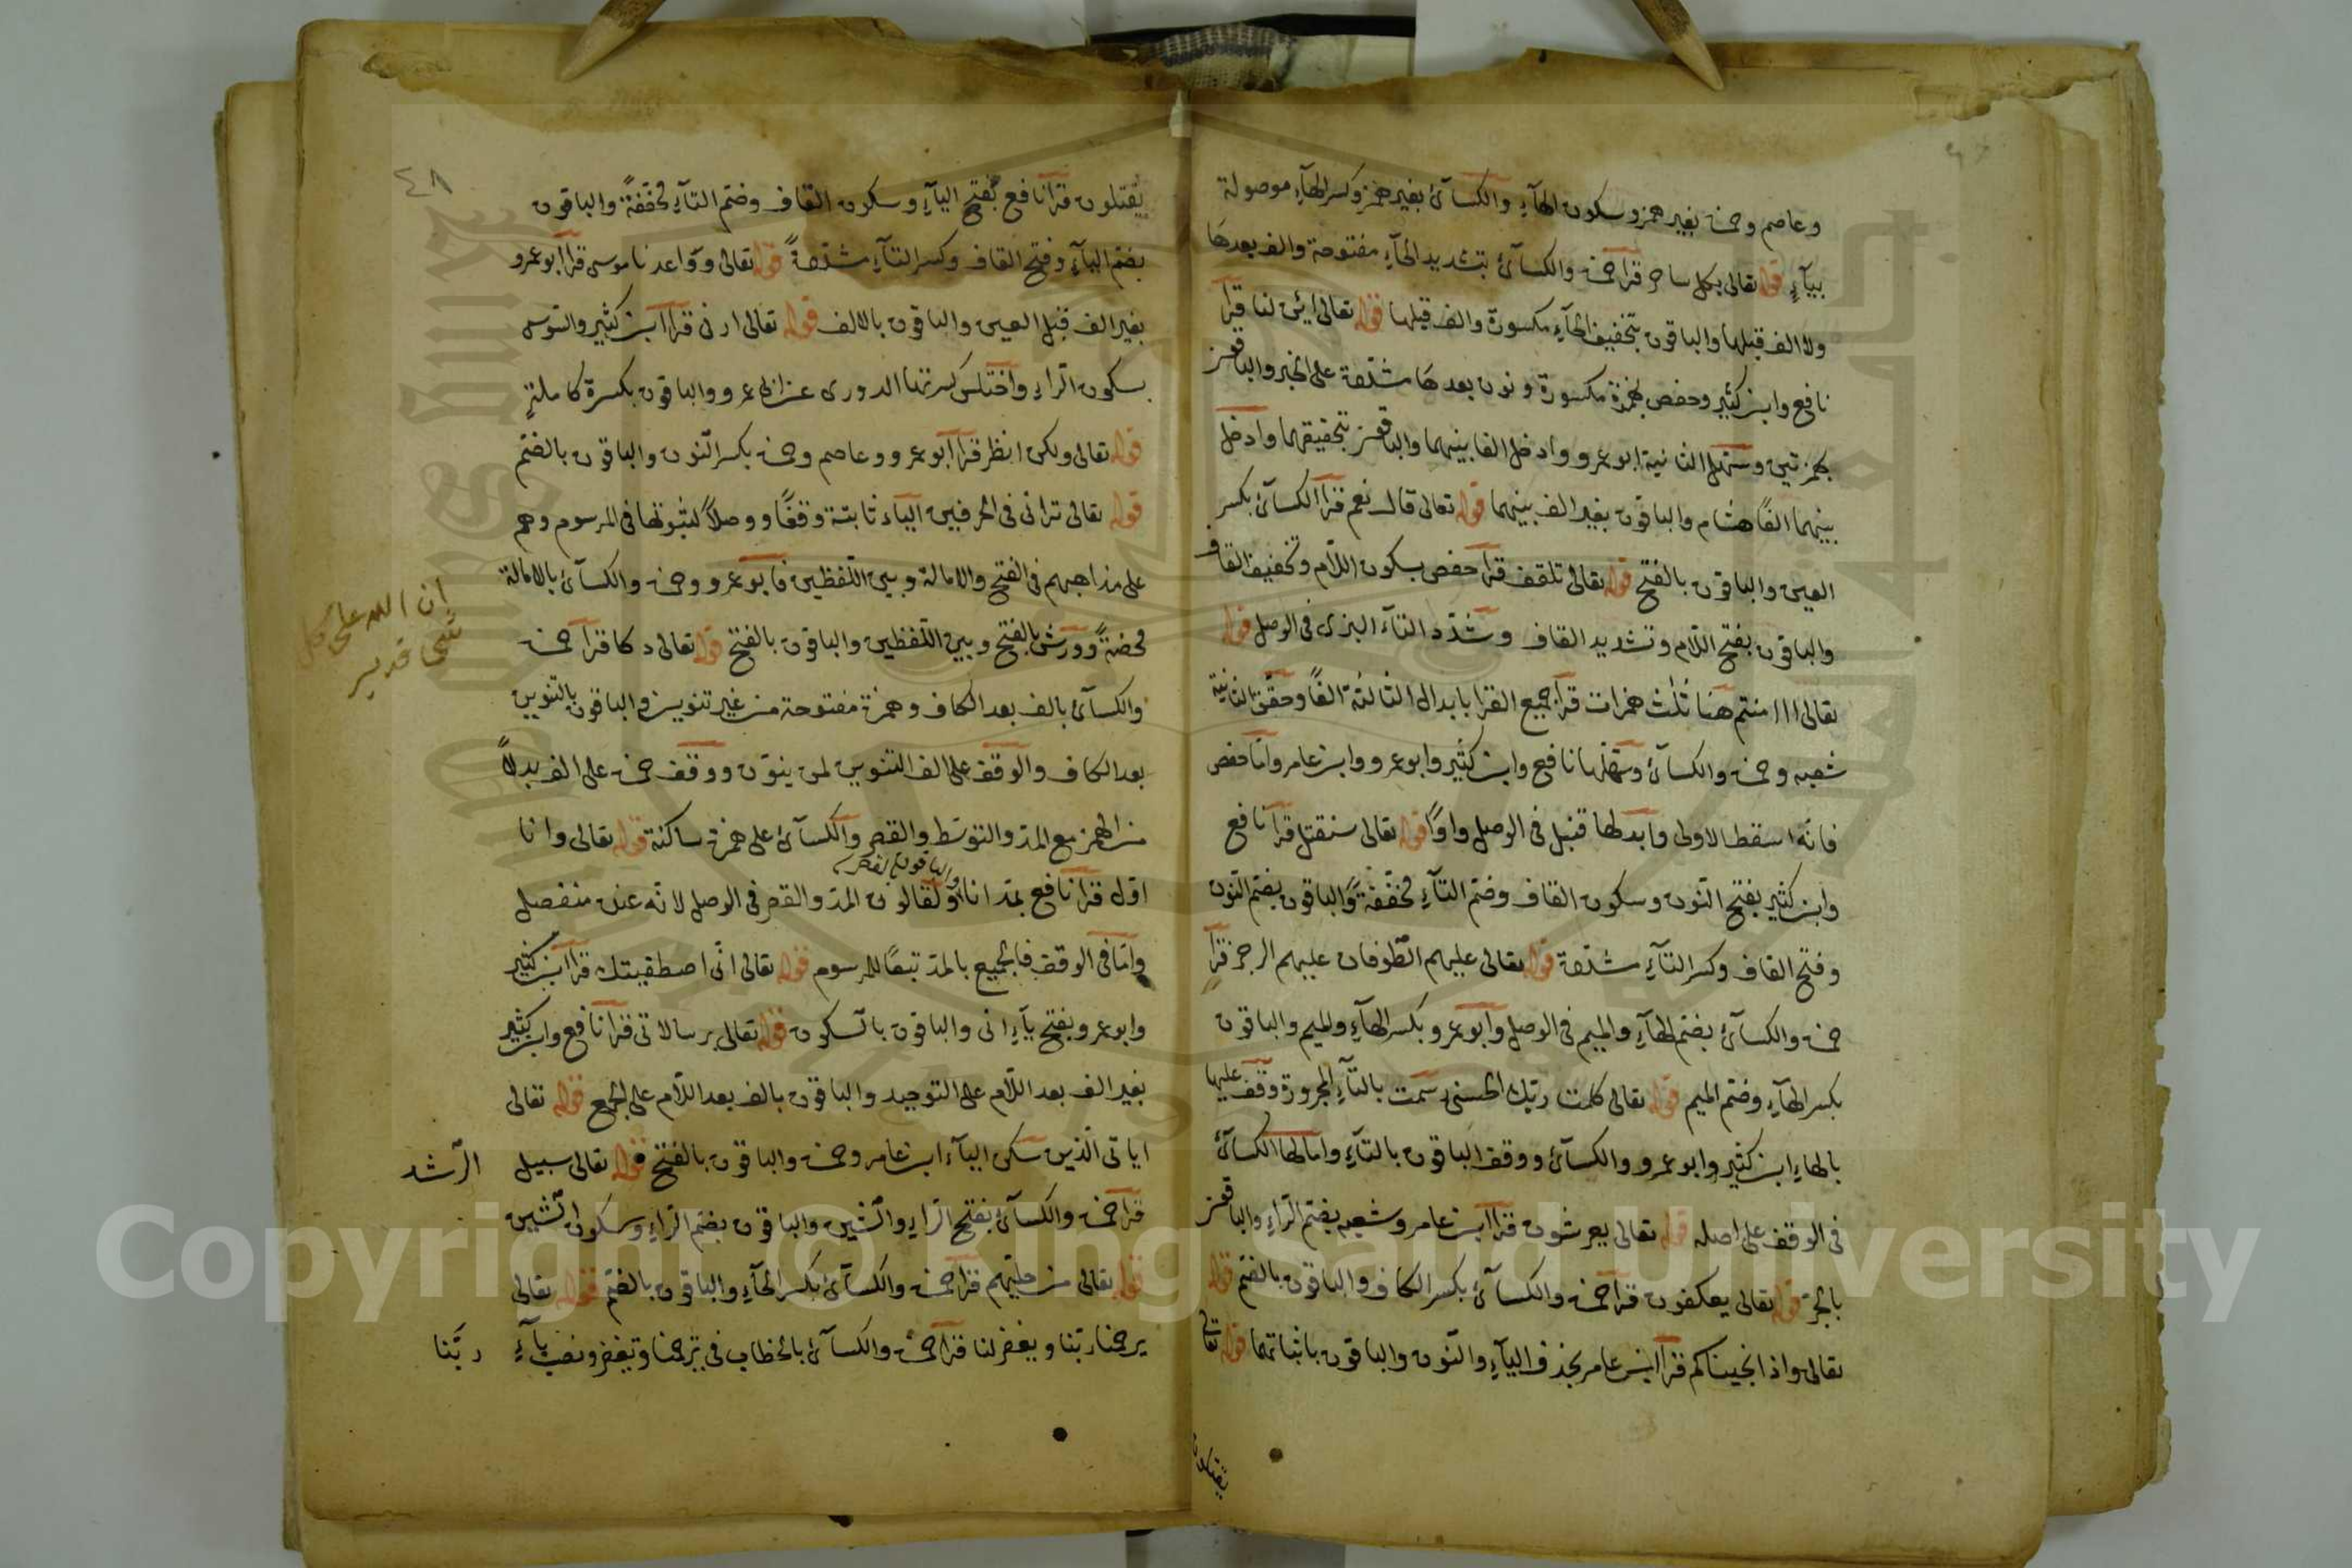 وعاصم وحمزة بغير همز وسكون الهآءِ والكسآئ بغير همز وكسر الهآءِ موصولة
بيآءٍ قوله تعالى بكل ساحر قرأ حمزة والكسآئ بتشديد الحآءِ مفتوحة والف بعدها
ولا الف قبلها والباقون بتخفيف الحآءِ مكسورة والف قبلها قوله تعالى ائن لنا قرأ
نافع وابن كثير وحفص بهمزة مكسورة ونون بعدها مشدّدة على الخبر والباقون
بهمزتين وسَهّل الثانية ابو عمرو وادخل الفا بينهما والباقون بتحقيقهما وادخل
بينهما الفًا هشام والباقون بغير الف بينهما قوله تعالى قال نعم قرأ الكسآئ بكسر
العين والباقون بالفتح قوله تعالى تلقف قرأ حفص بسكون اللّام وتخفيف القاف
والباقون بفتح اللّام وتشديد القاف وشدّد التآء البزى فى الوصل قوله
تعالى ااامنتم هنا ثلث همزات قرأ جميع القرا بابدال الثالثة الفًا وحقّق الثانية
شعبه وحمزة والكسآئ وسَهّلها نافع وابن كثير وابو عمرو وابن عامر وامّا حفص
فانّه اسقط الاولى وابدلها قنبل فى الوصل واوًا قوله تعالى سنقتل قرأ نافع
وابن كثير بفتح النّون وسكون القاف وضمّ التآءِ مخفّفةً والباقون بضم النّون
وفتح القاف وكسر التآءِ مشدّدة قوله تعالى عليهم الطّوفان عليهم الرجز قرأ
حمزة والكسآئ بضم الهآءِ والميم فى الوصل وابو عمرو بكسر الهآءِ والميم والباقون
بكسر الهآءِ وضم الميم قوله تعالى كلمت ربّك الحسنى رسمت بالتآءِ المجرورة وقف عليها
بالهاءِ ابن كثير وابو عمرو والكسآئ ووقف الباقون بالتآءِ وامالها الكسآئ
فى الوقف على اصله قوله تعالى يعرشون قرأ ابن عامر وشعبه بضم الرّاءِ والباقون
بالجرّ قوله تعالى يعكفون قرأ حمزة والكسآئ بكسر الكاف والباقون بالضمّ قوله
تعالى واذ انجيناكم قرأ ابن عامر بحذف اليآءِ والنّون والباقون باثباتهما قوله تعالى
يقتلون
٤٨
يقتلون قرأ نافع بفتح اليآءِ وسكون القاف وضمّ التآءِ مخفّفةً والباقون
بضم اليآءِ وفتح القاف وكسر التآءِ مشدّدةً قوله تعالى وواعدنا موسى قرأ ابو عمرو
بغير الف قبل العين والباقون بالالف قوله تعالى ارنى قرأ ابن كثير والسّوسى
بسكون الرّاءِ واختلس كسرتها الدورى عن ابى عمرو والباقون بكسرة كاملةٍ
قوله تعالى ولكن انظر قرأ ابو عمرو وعاصم وحمزة بكسر النّون والباقون بالضمّ
قوله تعالى ترانى فى الحرفين اليآء ثابتة وقفًا ووصلاً لثبوتها فى المرسوم وهم
على مذاهبهم فى الفتح والامالة وبين اللّفظين فابو عمرو وحمزة والكسآئ بالامالة
محضةً وورش بالفتح وبين اللّفظين والباقون بالفتح قوله تعالى دكا قرأ حمزة
ان الله على كل
شى قدير
والكسآئ بالف بعد الكاف وهمزة مفتوحة من غير تنوين والباقون بالتنوين
بعد الكاف والوقف على الف التنوين لمن ينوّن ووقف حمزة على الف بدلاً
من الهمز مع المدّ والتوسّط والقصر والكسآئ على همزة ساكنة قوله تعالى وانا
اوّل قرأ نافع بمدّ انا ولقالون المدّ والقصر فى الوصل لانّه عنده منفصل
والباقون بالقصر
وامّا فى الوقف فالجميع بالمدّ تبعًا للمرسوم قوله تعالى انّى اصطفيتك قرأ ابن كثير
وابو عمرو بفتح يآءِ انى والباقون بالسّكون قوله تعالى برسالاتى قرأ نافع وابن كثير
بغير الف بعد اللّام على التوحيد والباقون بالف بعد اللّام على الجمع قوله تعالى
اياتى الّذين سكن اليآء ابن عامر وحمزة والباقون بالفتح قوله تعالى سبيل الرّشد
قرأ حمزة والكسآئ بفتح الرّاءِ والشّين والباقون بضم الرّاءِ وسكون الشّين
قوله تعالى من حليّهم قرأ حمزة والكسآئ بكسر الحآءِ والباقون بالضمّ قوله تعالى
يرحمنا ربّنا ويغفر لنا قرأ حمزة والكسآئ بالخطاب فى ترحمنا وتغفر ونصب بآءِ ربّنا
Copyright © King Saud University